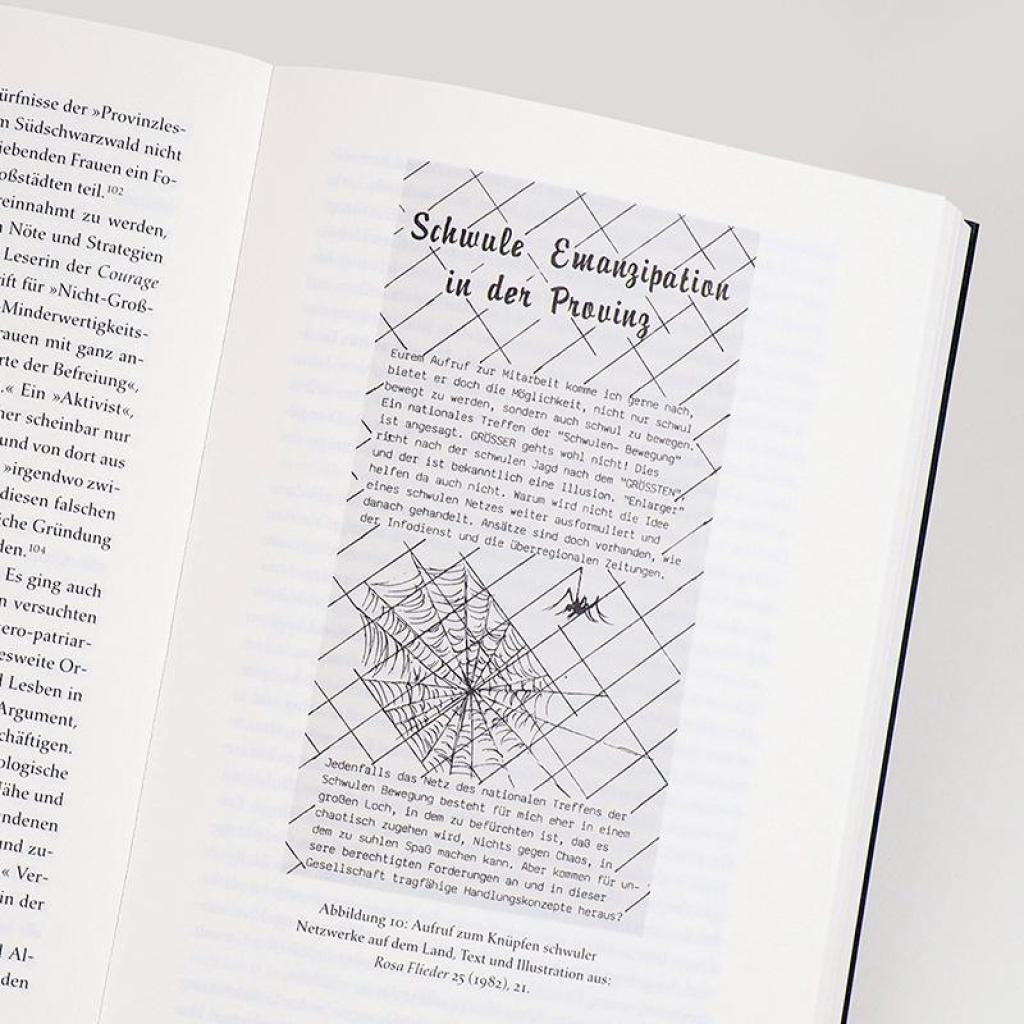 ürfnisse der »Provinzles-
m Südschwarzwald nicht
iebenden Frauen ein Fo-
oßstädten teil.¹⁰²
reinnahmt zu werden,
n Nöte und Strategien
Leserin der Courage
rift für »Nicht-Groß-
-Minderwertigkeits-
rauen mit ganz an-
rte der Befreiung«,
.« Ein »Aktivist«,
ner scheinbar nur
und von dort aus
»irgendwo zwi-
diesen falschen
iche Gründung
den.¹⁰⁴
Es ging auch
n versuchten
tero-patriar-
esweite Or-
d Lesben in
Argument,
chäftigen.
ologische
Nähe und
ndenen
und zu-
.« Ver-
in der
d Al-
den
Schwule Emanzipation
in der Provinz
Eurem Aufruf zur Mitarbeit komme ich gerne nach,
bietet er doch die Möglichkeit, nicht nur schwul
bewegt zu werden, sondern auch schwul zu bewegen.
Ein nationales Treffen der "Schwulen- Bewegung"
ist angesagt. GRÖSSER gehts wohl nicht! Dies
richt nach der schwulen Jagd nach dem "GRÖSSTEN",
und der ist bekanntlich eine Illusion. "Enlarger"
helfen da auch nicht. Warum wird nicht die Idee
eines schwulen Netzes weiter ausformuliert und
danach gehandelt. Ansätze sind doch vorhanden, wie
der Infodienst und die überregionalen Zeitungen.
Jedenfalls das Netz des nationalen Treffens der
Schwulen Bewegung besteht für mich eher in einem
großen Loch, in dem zu befürchten ist, daß es
chaotisch zugehen wird, Nichts gegen Chaos, in
dem zu suhlen Spaß machen kann. Aber kommen für un-
sere berechtigten Forderungen an und in dieser
Gesellschaft tragfähige Handlungskonzepte heraus?
Abbildung 10: Aufruf zum Knüpfen schwuler
Netzwerke auf dem Land, Text und Illustration aus:
Rosa Flieder 25 (1982), 21.